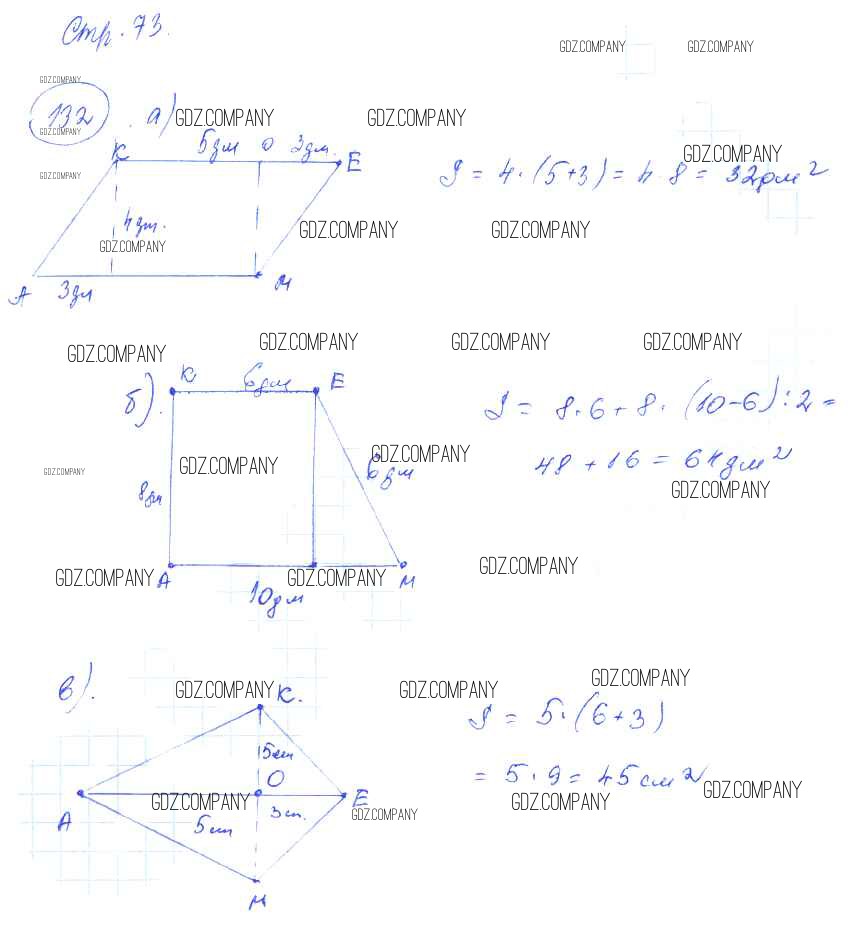 Стр. 73.
GDZ.COMPANY GDZ.COMPANY
GDZ.COMPANY
132 а) GDZ.COMPANY GDZ.COMPANY
GDZ.COMPANY
К 5дм О 3дм. Е GDZ.COMPANY
GDZ.COMPANY
S = 4 · (5+3) = 4 · 8 = 32дм²
4дм. GDZ.COMPANY GDZ.COMPANY
GDZ.COMPANY
А 3дм М
GDZ.COMPANY GDZ.COMPANY GDZ.COMPANY GDZ.COMPANY
К 6дм Е
б).
S = 8·6 + 8· (10-6) : 2 =
GDZ.COMPANY GDZ.COMPANY 6дм
48 + 16 = 64дм²
GDZ.COMPANY
8дм GDZ.COMPANY
GDZ.COMPANY
А GDZ.COMPANY GDZ.COMPANY М
10дм
GDZ.COMPANY
в). GDZ.COMPANY К. GDZ.COMPANY
S = 5·(6+3)
5см
О
= 5·9 = 45см² GDZ.COMPANY
А GDZ.COMPANY Е GDZ.COMPANY
GDZ.COMPANY
5см 3см.
М